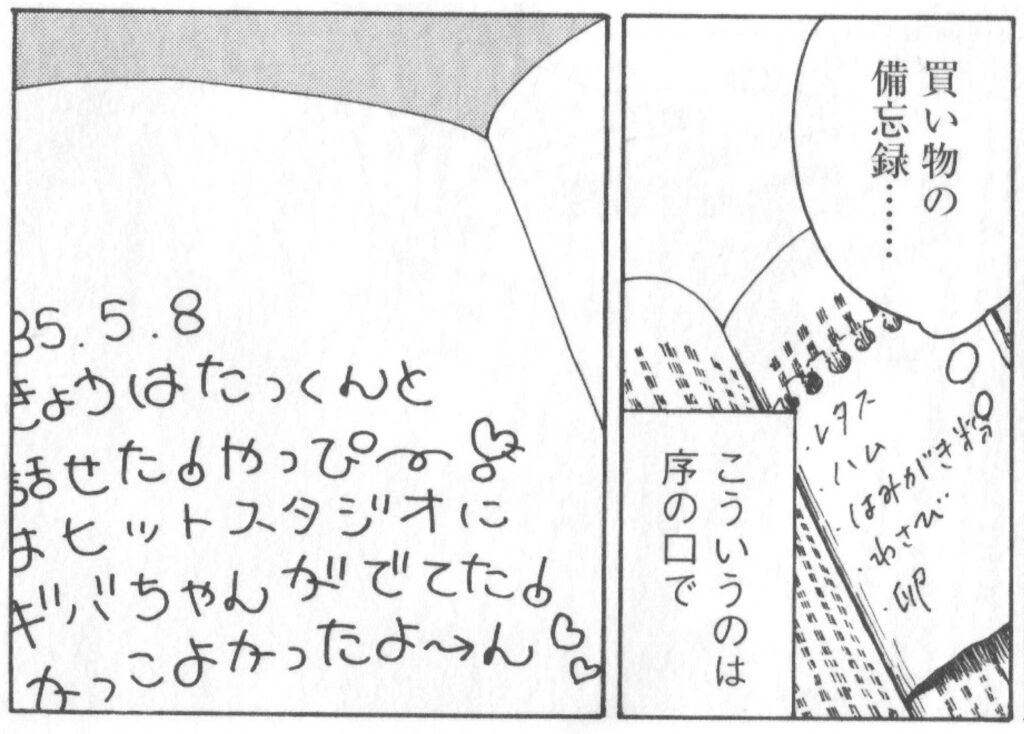 買い物の
備忘録……
・レタス
・ハム
・はみがき粉
・わさび
・卵
こういうのは
序の口で
85.5.8
きょうはたっくんと
話せた!やっぴ〜!
はヒットスタジオに
ギバちゃんがでてた!
かっこよかったよ〜ん